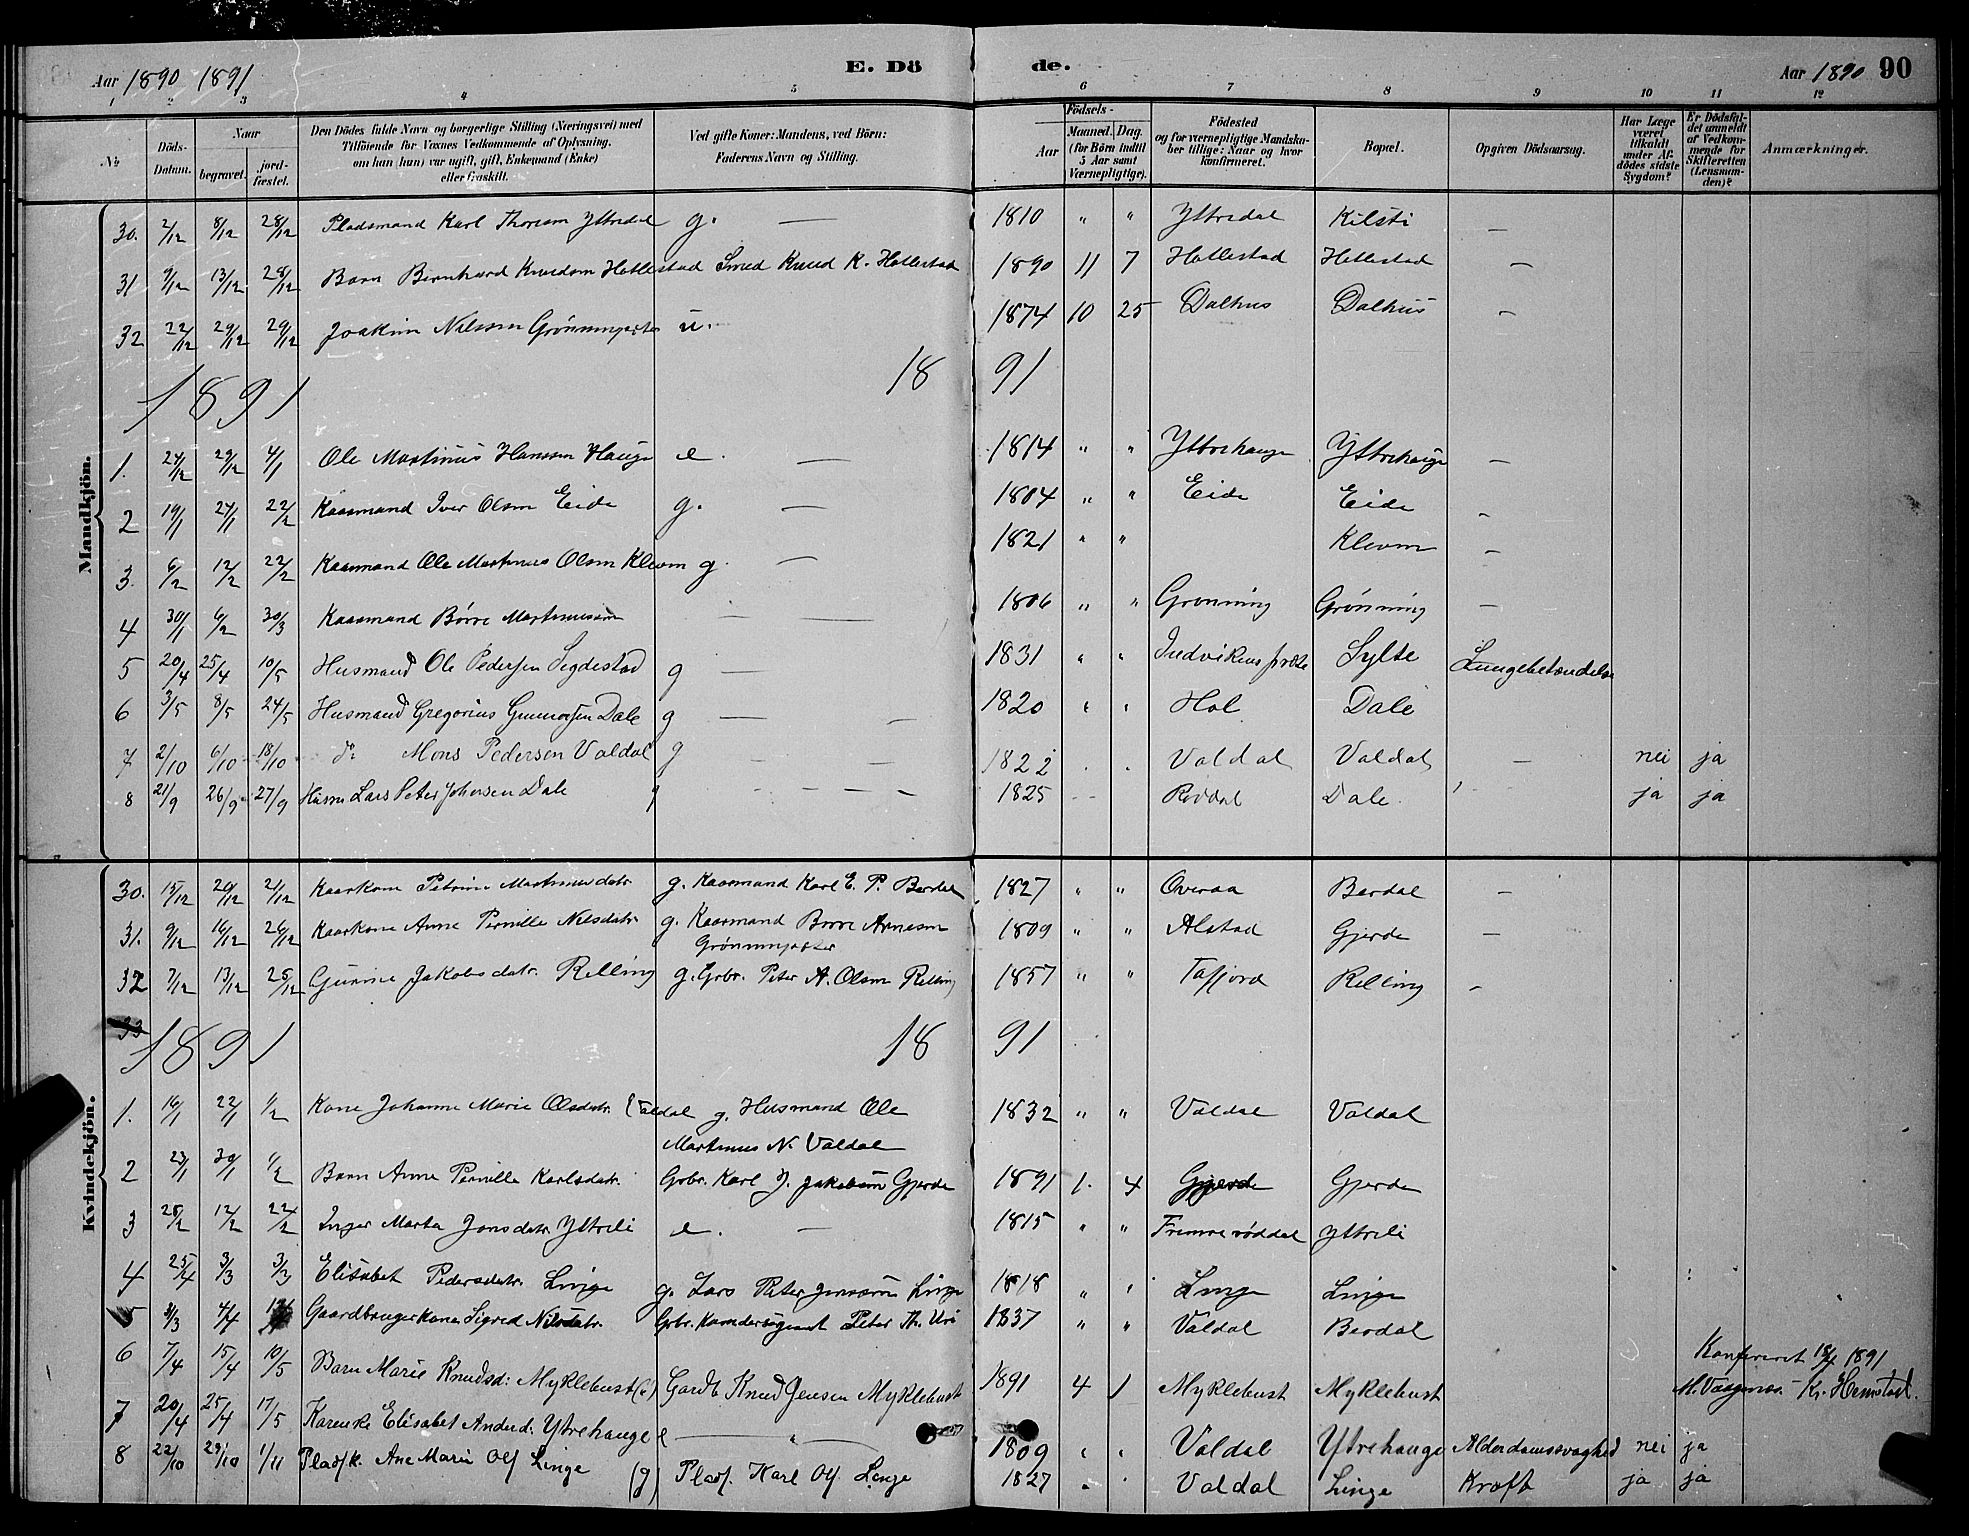 Aar 1890 1891 E. Dö de. Aar 1890 90
1 2 3 4 5 6 7 8 9 10 11 12
No
Döds-Datum.
Naar
begravet.
jord-fæstet.
Den Dödes fulde Navn og borgerlige Stilling (Næringsvei) med
Tilföiende for Voxnes Vedkommende af Oplysning,
om han (hun) var ugift, gift, Enkemand (Enke)
eller fraskilt.
Ved gifte Koner: Mandens, ved Börn:
Faderens Navn og Stilling.
Födsels-
Aar
Maaned. Dag.
(for Börn indtil
5 Aar samt
Værnepligtige).
Födested
og for værnepligtige Mandska-
ber tillige: Naar og hvor
konfirmeret.
Bopæl.
Opgiven Dödsaarsag.
Har Læge
været
tilkaldt
under Af-
dödes sidste
Sygdom?
Er Dödsfal-
det anmeldt
af Vedkom-
mende for
Skifteretten
(Lensman-
den)?
Anmærkninger.
Mandkjön.
30. 2/12 8/12 28/12 Pladsmand Karl Thorsen Yttredal g. — 1810 " " Yttredal Kilsti —
31 9/12 13/12 28/12 Barn Bernhard Knudsen Hollestad Smed Knud K. Hollestad 1890 11 7 Hollestad Hollestad —
32 22/12 29/12 29/12 Joakim Nilssen u. 1874 10 25 Dalhus Dalhus —
1891 18 91
1. 24/12 29/12 4/1 Ole Martinus Hanssen Hauge e. — 1814 " " Yttrehauge Yttrehauge —
2 19/1 27/1 22/2 Kaarmand Iver Olsen Eide g. — 1804 " " Eide Eide —
3. 6/2 12/2 22/2 Kaarmand Ole Martinus Olsen Kleven g. — 1821 " " Kleven —
4 30/1 6/2 30/3 Kaarmand Börre Martinussen — — 1806 " " Grönning Grönning —
5 20/4 25/4 10/5 Husmand Ole Pedersen Segdestad g — 1831 " " Indvikens præst Sylte Lungebetændelse
6 3/5 8/5 24/5 Husmand Gregorius Gunnarsen Dale g — — 1820 " " Hol Dale
7 2/10 6/10 18/10 do Mons Pedersen Valdal g — — 1822 . . Valdal Valdal — nei ja
8 21/9 26/9 27/9 Husm Lars Peter Johnsen Dale g — — — — 1825 - - Röddal Dale. ja ja
Kvindekjön.
30. 15/12 20/12 21/12 Kaarkone Petrine Martinusdatr. g. Kaarmand Karl E. P. Berdal 1827 " " Overaa Berdal —
31. 9/12 16/12 26/12 Kaarkone Anne Pernille Nilsdatr. g. Kaarmand Börre Arnesen 1809 " " Alstad Gjerde —
32 7/12 13/12 25/12 Gurine Jakobsdatr. Relling g. Grbr. Peter A. Olsen Relling 1857 " " Tafjord Relling -
33
1891 18 91
1. 16/1 22/1 1/2 Kone Johanne Marie Olsdatr. Valdal g. Husmand Ole 1832 " " Valdal Valdal
Martinus N. Valdal
2 23/1 30/1 1/2 Barn Anne Pernille Karlsdatr. Grbr. Karl J. Jakobsen Gjerde 1891 1. 4 Gjerde Gjerde
3 12/2 22/2 Inger Marta Jonsdatr. Yttreli e. — 1815 " " Fremre röddal Yttreli
4 3/3 3/3 Elisabet Pedersdatr. Linge g. Lars Peter Jonssen Linge 1818 " " Linge Linge
5 3/3 4/4 Gaardbrugerkone Sigred Nilsdatr. Grbr. Peter Th. Uri 1837 " " Valdal Berdal
6 7/4 15/4 10/5 Barn Marie Knudsd: Myklebust Gardb Knud Jensen Myklebust 1891 4 1 Myklebust Myklebust
Konfereret 18/4 1891
7 20/4 25/4 17/5 Karenke Elisabet Andersd: Ytrehauge e — " — 1809 " " Valdal Ytrehauge Alderdomssvaghed nei ja
8 22/10 29/10 1/11 Pladsk. Ane Marie Ols Linge (g) Plads. Karl Ols Linge 1827 " " Valdal Linge Kræft ja ja